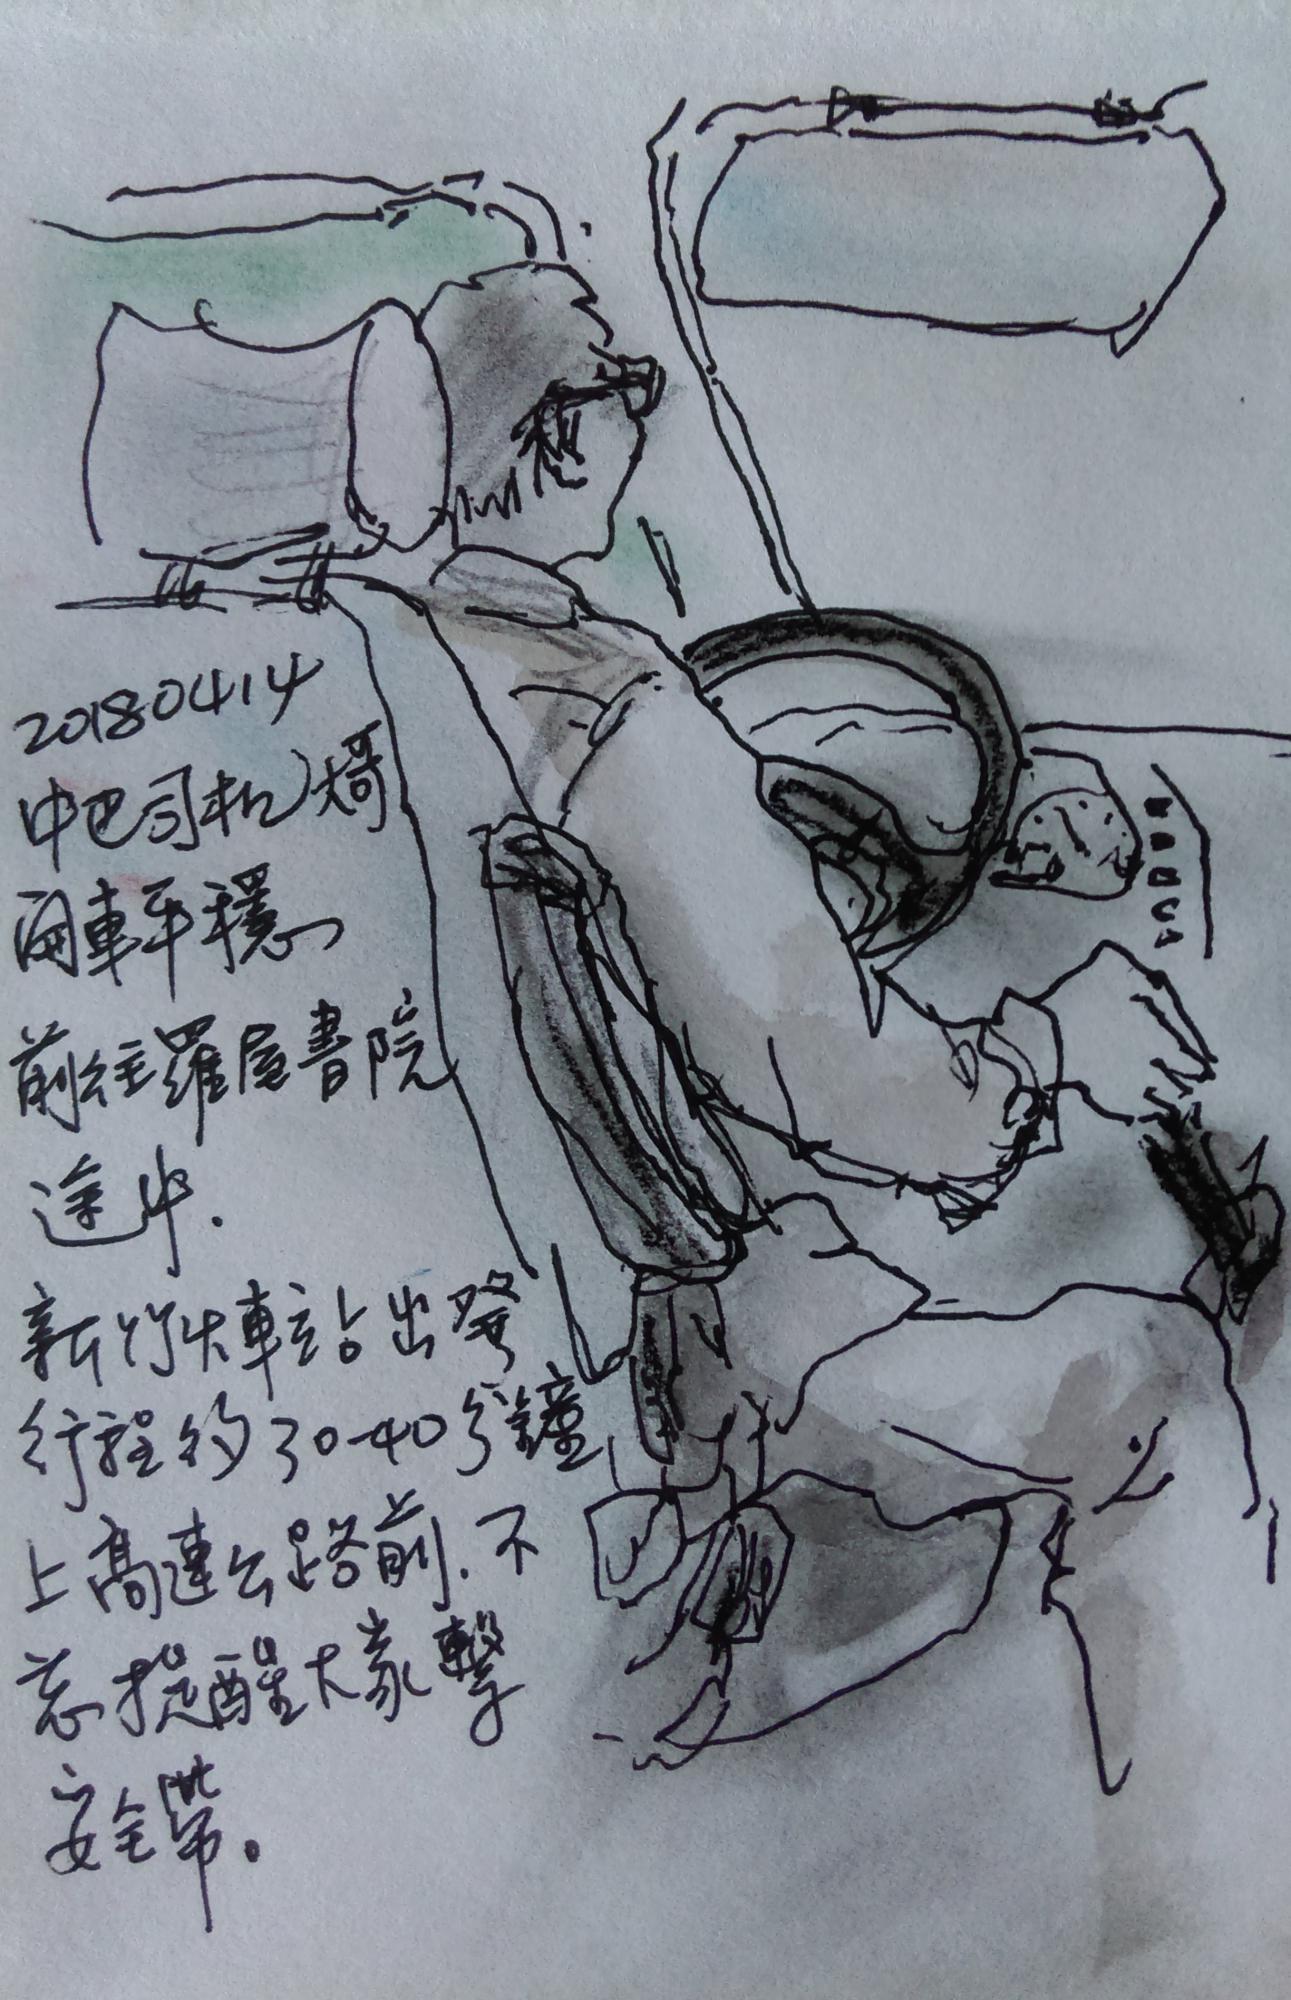 20180414
中巴司机大哥
開車平穩
前往羅屋書院
途中.
新竹火車站出發
行程約30-40分鐘
上高速公路前.不
忘提醒大家繫
安全帶。